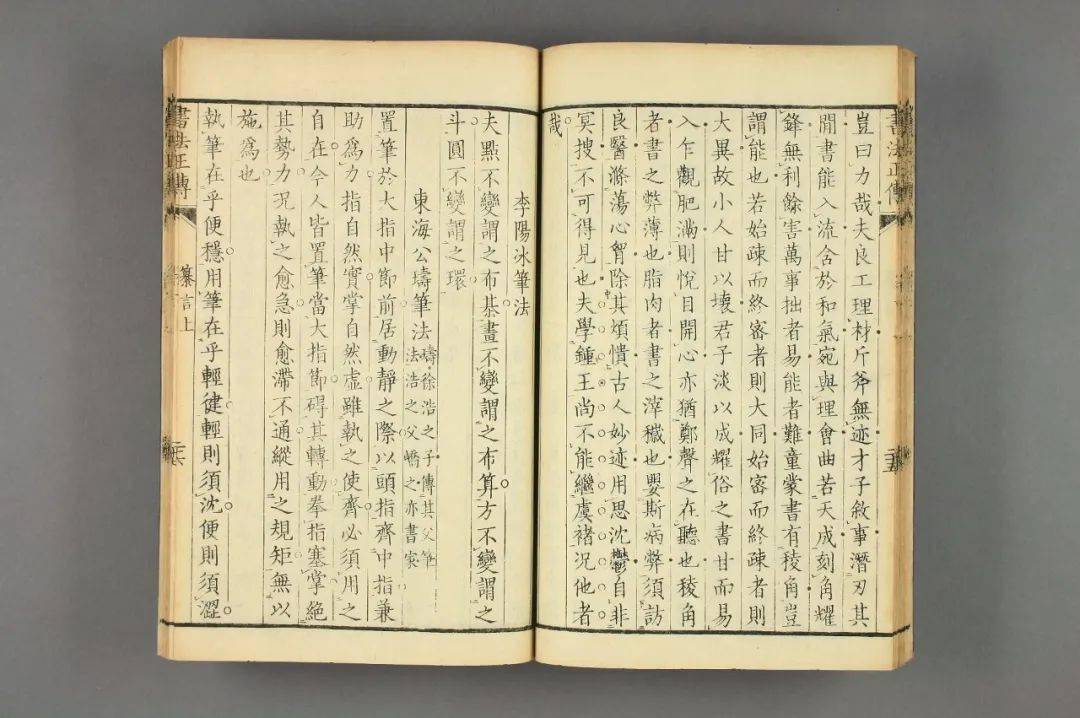 豈曰力哉夫良工理材斤斧無迹才子敘事潛刃其
閒書能入流含於和氣宛與理會曲若天成刻角耀
鋒無利餘害萬事拙者易能者難童蒙書有稜角豈
謂能也若始疎而終密者則大同始密而終疎者則
大異故小人甘以壞君子淡以成耀俗之書甘而易
入乍觀肥滿則悅目開心亦猶鄭聲之在聽也稜角
者書之弊薄也脂肉者書之滓穢也嬰斯病弊須訪
良醫滌蕩心胷除其煩憒古人妙迹用思沈鬱自非
冥搜不可得見也夫學鍾王尚不能繼虞褚況他者
哉
李陽冰筆法
夫點不變謂之布棊畫不變謂之布算方不變謂之
斗圓不變謂之環
東海公璹筆法
璹徐浩之子傳其父筆
法浩之父嶠之亦書家
置筆於大指中節前居動靜之際以頭指齊中指兼
助為力指自然實掌自然虛雖執之使齊必須用之
自在今人皆置筆當大指節碍其轉動拳指塞掌絕
其勢力況執之愈急則愈滯不通縱用之規矩無以
施為也
執筆在乎便穩用筆在乎輕健輕則須沈便則須澀
書法正傳
纂言上
二六
書法正傳
二五